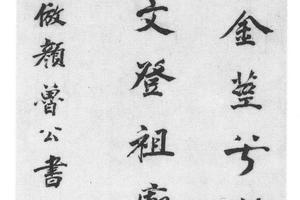 金莖
文登祖
倣顏魯公書